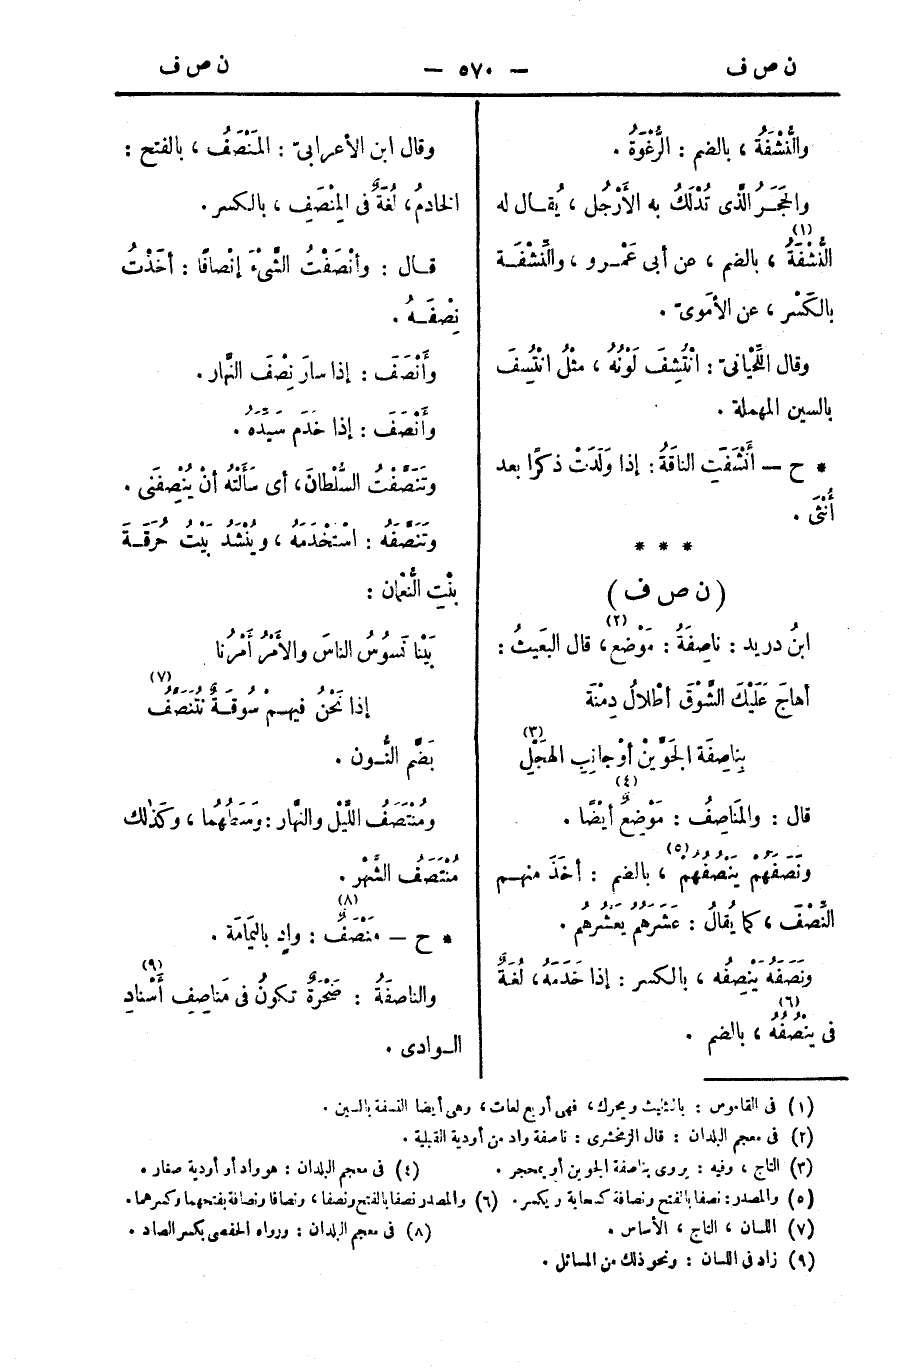 ن ص ف — ٥٧٠ — ن ص ف
والنُّشْفَةُ، بالضم: الرُّغْوَةُ.
والحَجَرُ الَّذى تُدْلَكُ به الأَرْجُل، يُقال له
النُّشْفَةُ (١)، بالضم، عن أبى عَمْرو، والنِّشْفَة
بالكَسْر، عن الأمَوىّ.
وقال اللِّحْيانىّ: انْتُشِفَ لَوْنُهُ، مثْلُ انْتُسِفَ
بالسين المهملة.
* ح — أَنْشَفَتِ الناقَةُ: إذا وَلَدَتْ ذكَرًا بعد
أُنْثَى.
* * *
(ن ص ف)
ابنُ دريد: ناصِفَةُ: مَوْضع (٢)، قال البَعيثُ:
أهاجَ عَلَيْكَ الشَّوْقَ أطْلالُ دِمْنَة
بِناصِفَة الجَوَّيْنْ أوْ جانِبِ الهَجْلِ (٣)
قال: والمَناصِفُ: مَوْضِعٌ (٤) أيْضًا.
ونَصَفَهُمْ يَنْصُفُهُمْ (٥)، بالضم: أخَذَ منهم
النِّصْفَ، كما يُقالُ: عَشَرَهُم يَعْشُرُهُم.
ونَصَفَهُ يَنْصِفُه، بالكسر: إذا خَدَمَهُ، لُغَةٌ
فى يَنْصُفُهُ (٦)، بالضم.
وقال ابن الأعرابىّ: المَنْصَفُ، بالفتح:
الخادمُ، لُغَةٌ فى المِنْصَفِ، بالكسر.
قال: وأنْصَفْتُ الشَّىْءَ إنْصافًا: أخَذْتُ
نِصْفَهُ.
وأَنْصَفَ: إذا سارَ نِصْفَ النَّهار.
وأَنْصَفَ: إذا خَدَم سَيِّدَهُ.
وتَنَصَّفْتُ السُّلْطانَ، أى سَأَلْتهُ أنْ يُنْصِفَنى.
وتَنَصَّفَهُ: اسْتَخْدَمَهُ، ويُنْشَدُ بَيْتُ حُرَقَةَ
بنْتِ النُّعْمان:
بَيْنا نَسُوسُ الناسَ والأمْرُ أمْرُنا
إذا نَحْنُ فيهمْ سُوقَةٌ نُتَنَصَّفُ (٧)
بَضَّم النُّون.
ومُنْتَصَفُ اللَّيْل والنَّهار: وَسَطُهُما، وكَذلك
مُنْتَصَفُ الشَّهْر.
* ح — مَنْصَفٌ (٨): وادٍ باليَمَامَة.
والناصفَةُ: صَخْرَةٌ تكونُ فى مَناصِفِ أَسْنادِ (٩)
الوادى.
(١) فى القاموس: بالتثليث ويحرك، فهى أربع لغات، وهى أيضا النسفة بالسين.
(٢) فى معجم البلدان: قال الزمخشرى: ناصفة واد من أودية القبلية.
(٣) التاج، وفيه: يروى بناصفة الجوين أو بمحجر. (٤) فى معجم البلدان: هو واد أو أودية صغار.
(٥) والمصدر: نصفا بالفتح ونصافة كسحابة ويكسر. (٦) والمصدر نصفا بالفتح ونصفا، ونصافا ونصافة بفتحهما وكسرهما.
(٧) اللسان، التاج، الأساس. (٨) فى معجم البلدان: ورواه الحفصى بكسر الصاد.
(٩) زاد فى اللسان: ونحو ذلك من المسائل.